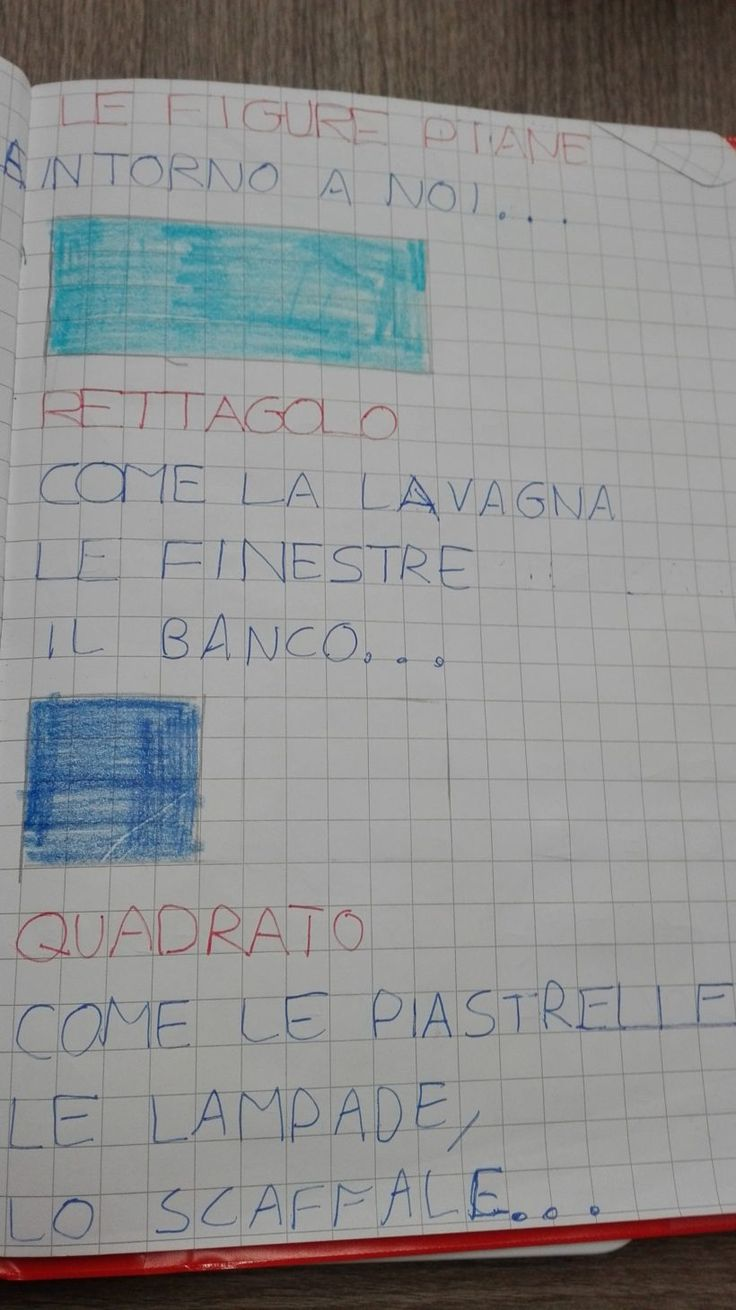 LE FIGURE PIANE
INTORNO A NOI...
RETTAGOLO
COME LA LAVAGNA
LE FINESTRE
IL BANCO...
QUADRATO
COME LE PIASTRELLE
LE LAMPADE,
LO SCAFFALE...